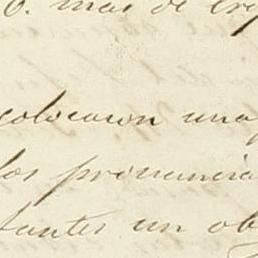 o. mas de cre
colocaron una
los pronuncia
tantes un ob